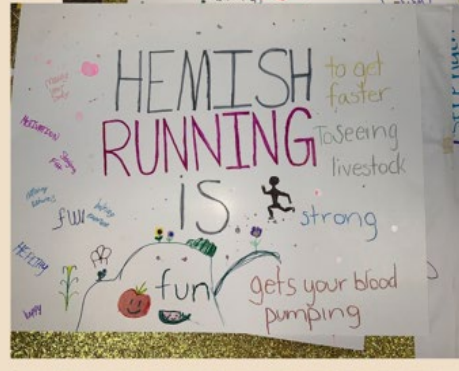 HEMISH
RUNNING
is
to get
faster
To Seeing
livestock
strong
gets your blood
pumping
fun
MOTIVATION
fun
HEALTHY
happy